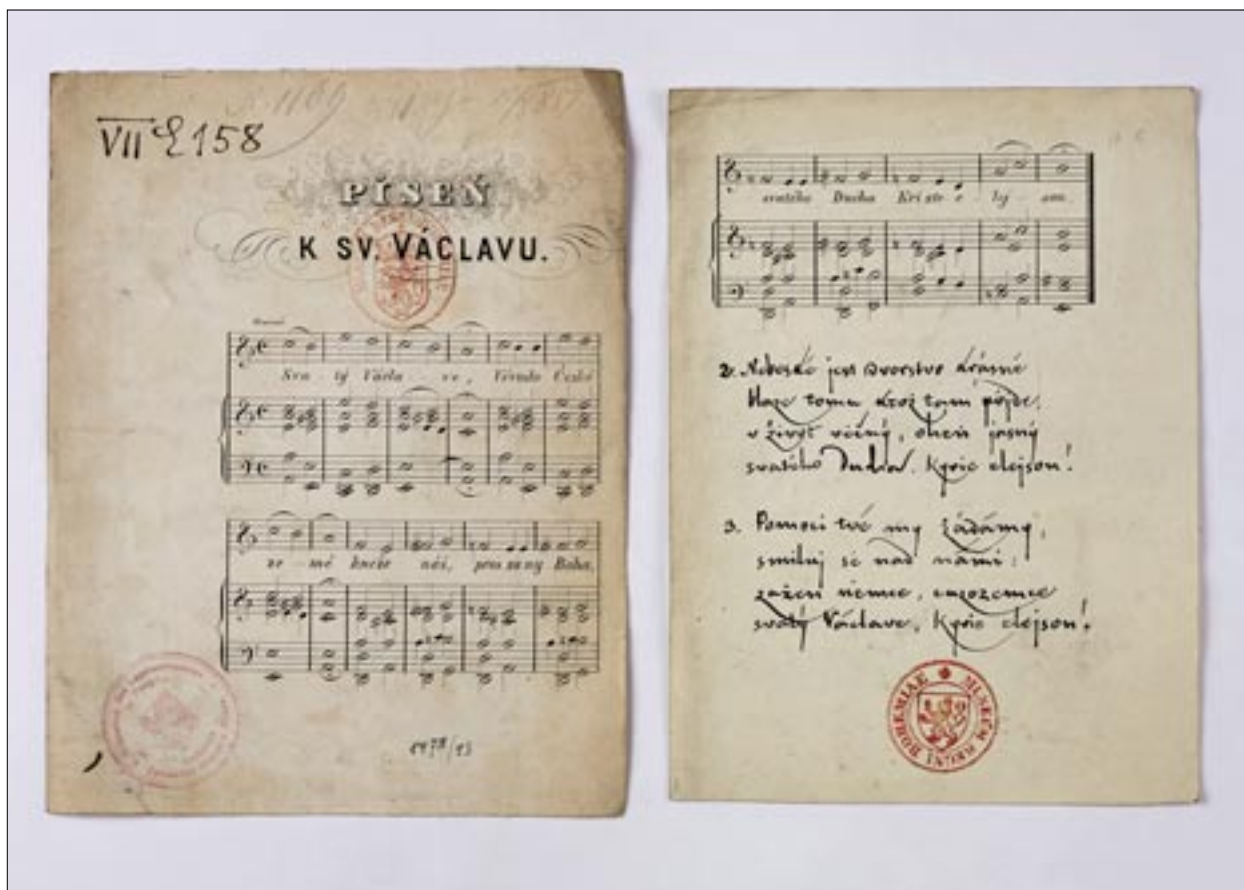 VII E 158
PÍSEŇ
K SV. VÁCLAVU.
Sva tý Václa ve, Vévodo České
ze mě kněže náš, pros za ny Boha,
svatého Ducha Krist e lej son.
2. Nebeské jest dvorstvo krásné
blaze tomu ktož tam pójde,
v život věčný, oheň jasný
svatého Ducha. Kyrie elejson!
3. Pomoci tvé my žádámy,
smiluj sě nad námi:
zažeň němce, cuzozemce
svatý Václave, Kyrie elejson!
MUSEUM REGNI BOHEMIAE